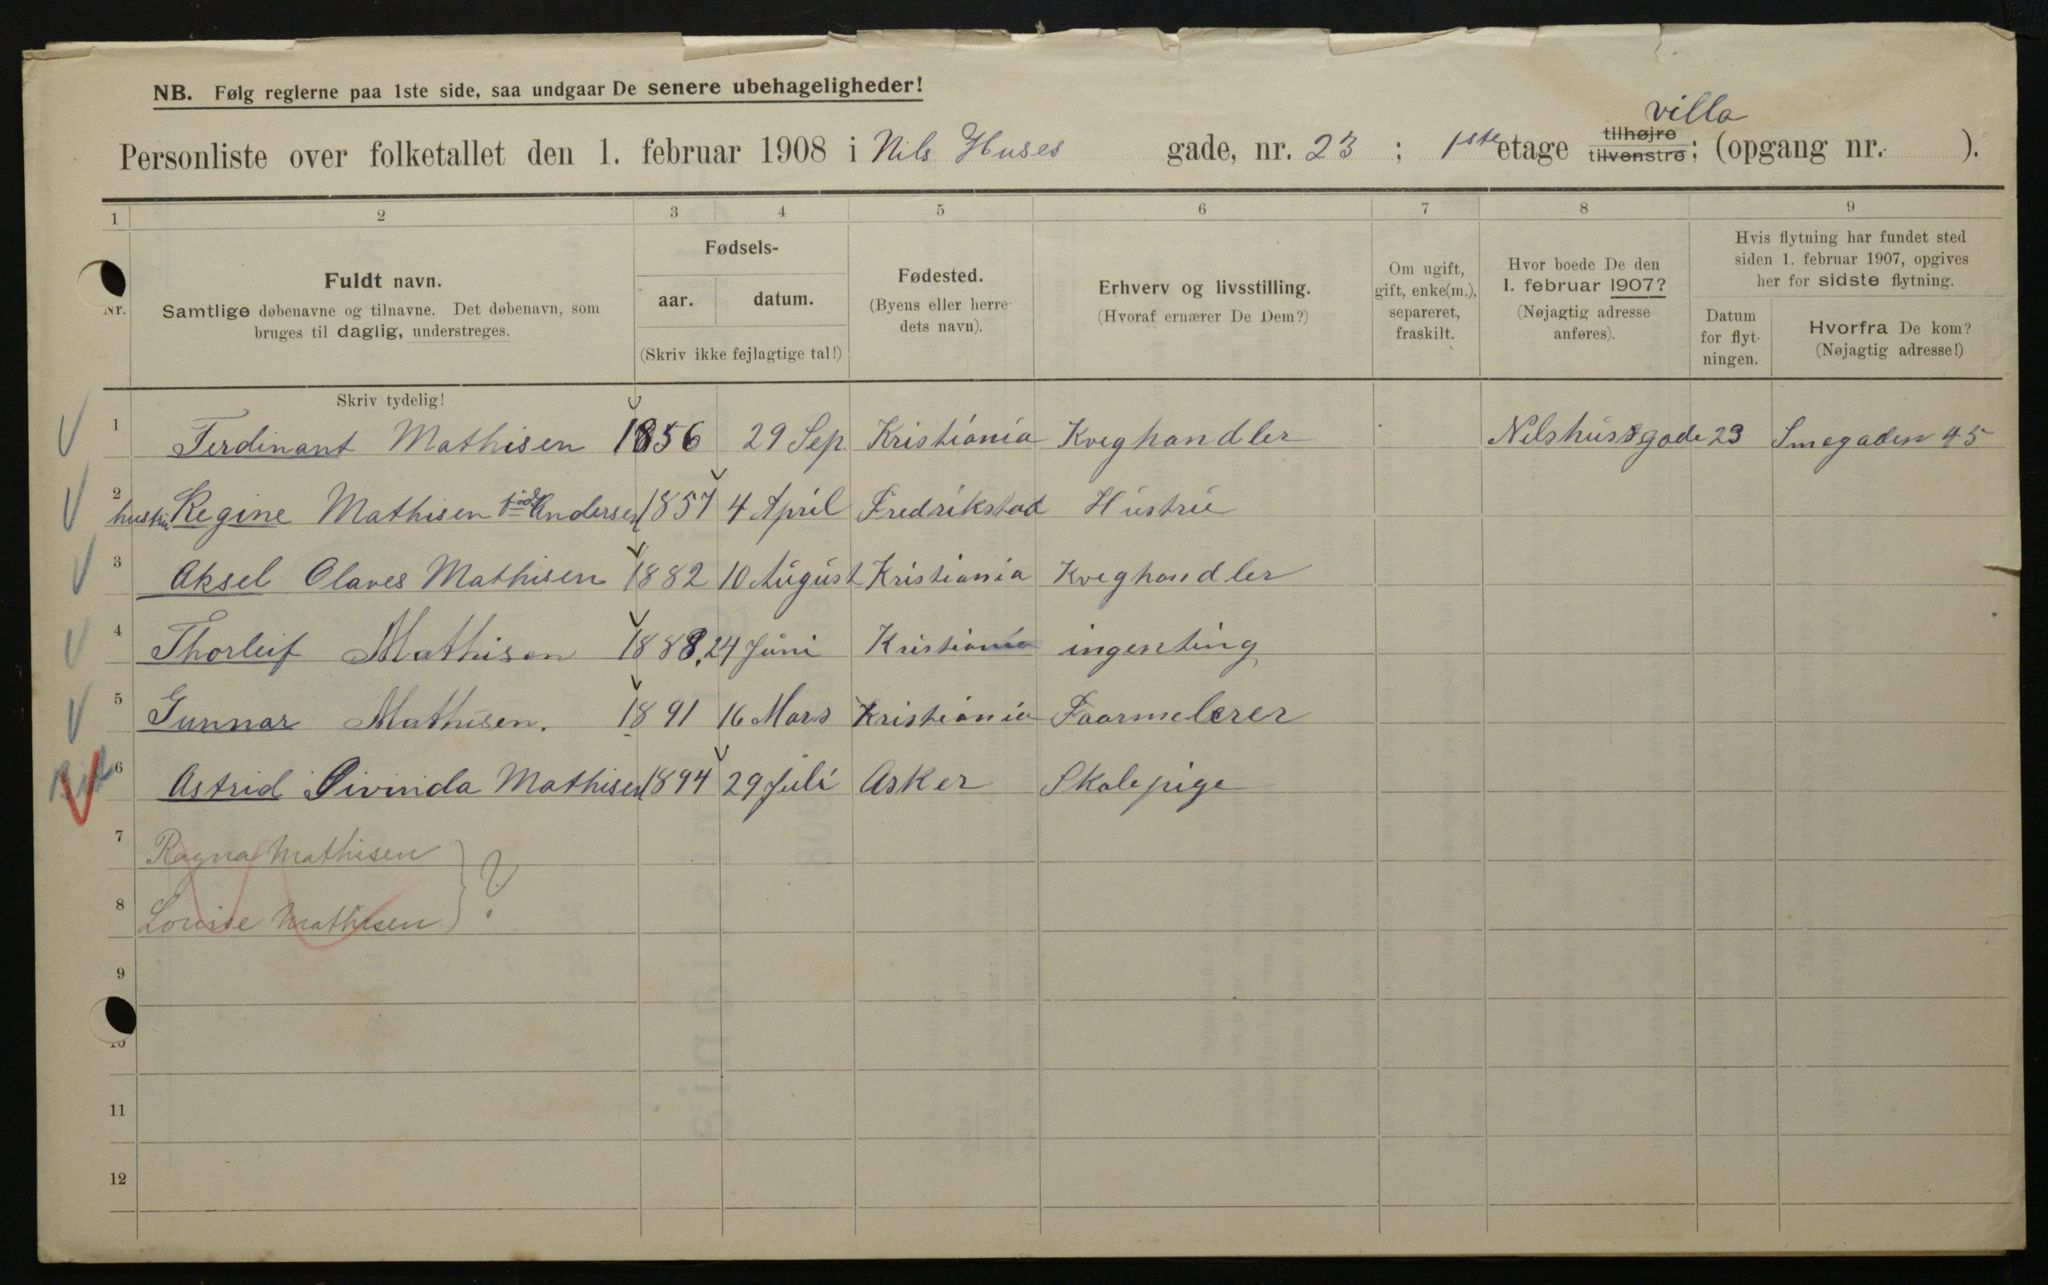 NB. Følg reglerne paa 1ste side, saa undgaar De senere ubehageligheder!
villa
Personliste over folketallet den 1. februar 1908 i Nils Huses gade, nr. 23 ; 1ste etage tilhøjre tilvenstre; (opgang nr. ).
1 2 3 4 5 6 7 8 9
Nr.
Fuldt navn.
Samtlige døbenavne og tilnavne. Det døbenavn, som
bruges til daglig, understreges.
Fødsels-
aar. datum.
(Skriv ikke fejlagtige tal!)
Fødested.
(Byens eller herre-
dets navn).
Erhverv og livsstilling.
(Hvoraf ernærer De Dem?)
Om ugift,
gift, enke(m.),
separeret,
fraskilt.
Hvor boede De den
1. februar 1907?
(Nøjagtig adresse
anføres).
Hvis flytning har fundet sted
siden 1. februar 1907, opgives
her for sidste flytning.
Datum
for flyt-
ningen.
Hvorfra De kom?
(Nøjagtig adresse!)
Skriv tydelig!
1 Ferdinant Mathisen 1856 29 Sep. Kristiania Kveghandler Nilshusesgade 23 Smegaden 45
2 hustru Regine Mathisen född Andersen 1857 4 April Fredrikstad Hustru
3 Aksel Olaves Mathisen 1882 10 August Kristiania Kveghandler
4 Thorleif Mathisen 1888, 24 Juni Kristiania ingenting
5 Gunnar Mathisen. 1891 16 Mars Kristiania Faarmelerer
6 Astrid Oivinda Mathisen 1894 29 Juli Asker Skolepige
7 Ragna Mathisen } ?
8 Louise Mathisen
9
10
11
12